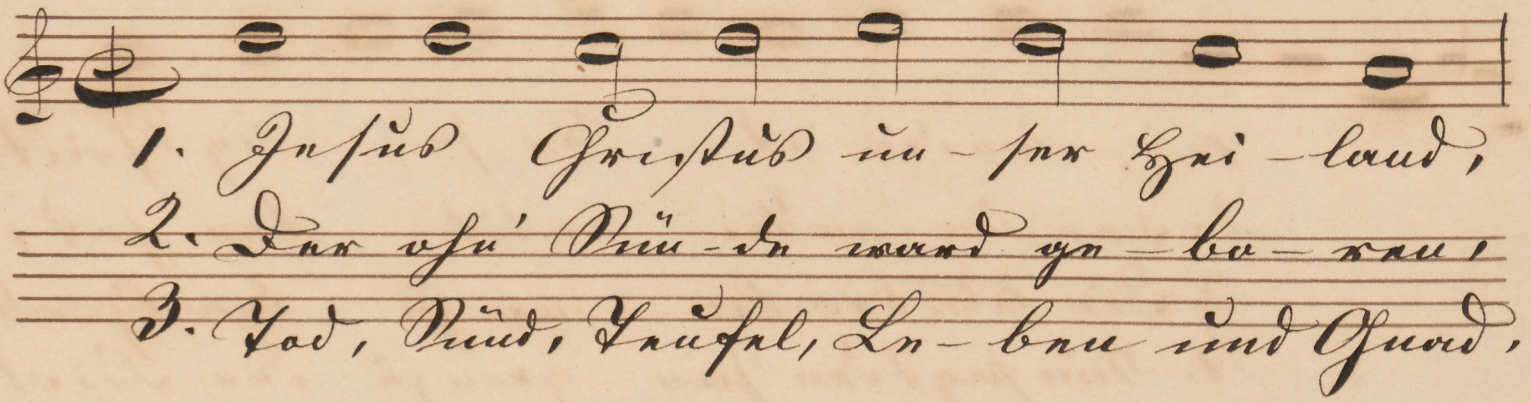 1. Jesus Christus un-ser Hei-land,
2. Der ohn' Sün-de ward ge-bo-ren,
3. Tod, Sünd, Teufel, Le-ben und Gnad,